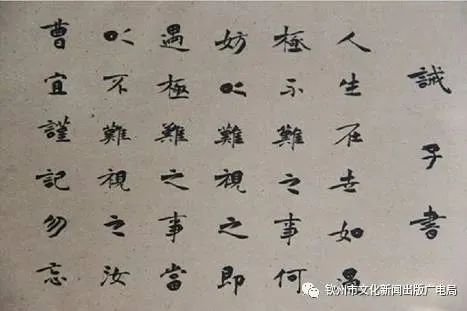 誡子書
人生在世如遇
極不難之事何
妨以難視之即
遇極難之事當
以不難視之汝
曹宜謹記勿忘
钦州市文化新闻出版广电局